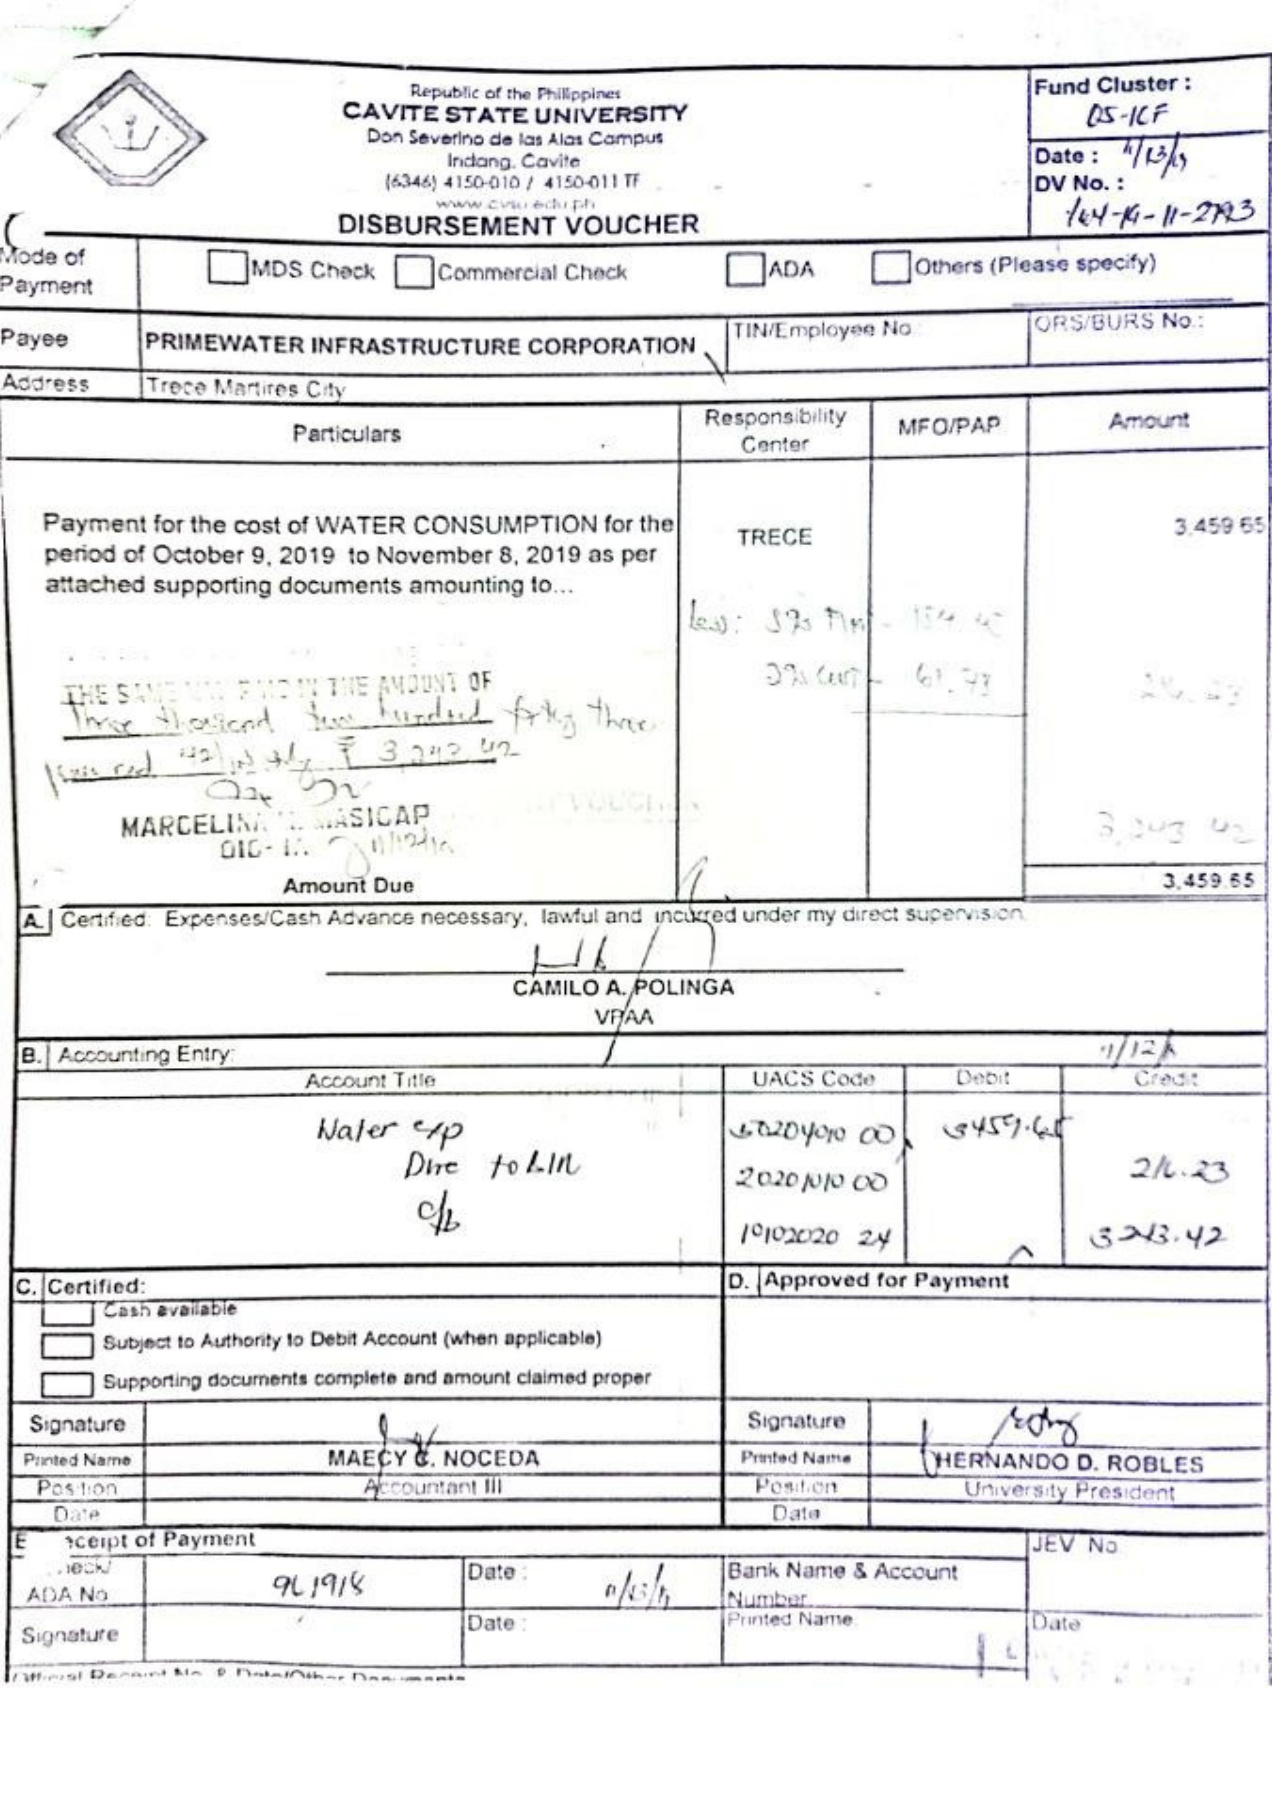 Republic of the Philippines
CAVITE STATE UNIVERSITY
Don Severino de las Alas Campus
Indang, Cavite
(6346) 4150-010 / 4150-011 TF
www.cvsu.edu.ph
DISBURSEMENT VOUCHER
Fund Cluster :
05-1CF
Date : 11/13/19
DV No. :
Mode of Payment
MDS Check
Commercial Check
ADA
Others (Please specify)
Payee
PRIMEWATER INFRASTRUCTURE CORPORATION
TIN/Employee No
ORS/BURS No.:
Address
Trece Martires City
Particulars
Responsibility Center
MFO/PAP
Amount
Payment for the cost of WATER CONSUMPTION for the
period of October 9, 2019 to November 8, 2019 as per
attached supporting documents amounting to...
TRECE
3,459 65
THE SAME IN THE AMOUNT OF
Three thousand two hundred forty three
3,243 42
MARCELINA MASICAP
Amount Due
3,459.65
A. Certified: Expenses/Cash Advance necessary, lawful and incurred under my direct supervision.
CAMILO A. POLINGA
VPAA
B. Accounting Entry:
Account Title
UACS Code
Debit
Credit
Water exp
50204010 00
3459.65
Due to BIR
20201010 00
216.23
c/b
10102020 24
3243.42
C. Certified:
Cash available
Subject to Authority to Debit Account (when applicable)
Supporting documents complete and amount claimed proper
D. Approved for Payment
Signature
Signature
Printed Name
MAECY C. NOCEDA
Printed Name
HERNANDO D. ROBLES
Position
Accountant III
Position
University President
Date
Date
E ceipt of Payment
JEV No
ADA No
961918
Date :
11/13/19
Bank Name & Account Number
Signature
Date :
Printed Name
Date
Official Receipt No. & Date/Other Documents